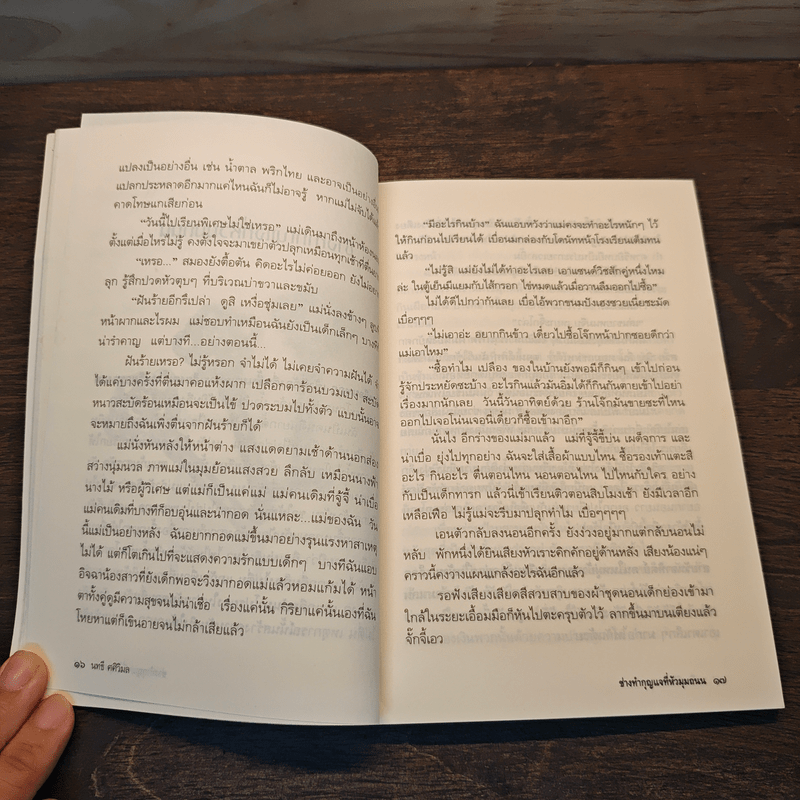 แปลงเป็นอย่างอื่น เช่น น้ำตาล พริกไทย และอาจเป็นอย่างอื่น
แปลกประหลาดอีกมากแค่ไหนฉันก็ไม่อาจรู้ หากแม่ไม่จับได้
คาดโทษแกเสียก่อน
“วันนี้ไปเรียนพิเศษไม่ใช่เหรอ” แม่เดินมาถึงหน้าห้อง
ตั้งแต่เมื่อไหร่ไม่รู้ คงตั้งใจจะมาเขย่าตัวปลุกเหมือนทุกเช้าที่
“เหรอ...” สมองยังตื้อตัน คิดอะไรไม่ค่อยออก ยังไม่อยาก
ลุก รู้สึกปวดหัวตุบๆ ที่บริเวณเบ้าขวาและขมับ
“ฝันร้ายอีกรึเปล่า ดูสิ เหงื่อชุ่มเลย” แม่นั่งลงข้างๆ
หน้าผากและไรผม แม่ชอบทำเหมือนฉันยังเป็นเด็กเล็กๆ
น่ารำคาญ แต่บางที...อย่างตอนนี้...
ฝันร้ายเหรอ? ไม่รู้หรอก จำไม่ได้ ไม่เคยจำความฝันได้
ได้แค่บางครั้งที่ตื่นมาคอแห้งผาก เปลือกตาร้อนบวมเป่ง
หนาวสะบัดร้อนเหมือนจะเป็นไข้ ปวดระบมไปทั้งตัว แบบนั้นอาจ
จะหมายถึงฉันเพิ่งตื่นจากฝันร้ายก็ได้
แม่นั่งหันหลังให้หน้าต่าง แสงแดดยามเช้าด้านนอกส่อง
สว่างนุ่มนวล ภาพแม่ในมุมย้อนแสงสวย ลึกลับ เหมือนนางฟ้า
นางไม้ หรือผู้วิเศษ แต่แม่ก็เป็นแค่แม่ แม่คนเดิมที่จู้จี้ น่าเบื่อ
แม่คนเดิมที่บางทีก็อบอุ่นและน่ากอด นั่นแหละ...แม่ของฉัน วัน
นี้แม่เป็นอย่างหลัง ฉันอยากกอดแม่ขึ้นมาอย่างรุนแรงหาสาเหตุ
ไม่ได้ แต่ก็โตเกินไปที่จะแสดงความรักแบบเด็กๆ บางทีฉันแอบ
อิจฉาน้องสาวที่ยังเด็กพอจะวิ่งมากอดแม่แล้วหอมแก้มได้ หน้า
ตาทั้งคู่ดูมีความสุขจนไม่น่าเชื่อ เรื่องแค่นั้น กิริยาแค่นั้นเองที่ฉัน
โหยหาแต่ก็เขินอายจนไม่กล้าเสียแล้ว
๑๖ นทธี ศศิวิมล
“มีอะไรกินบ้าง” ฉันแอบหวังว่าแม่คงจะทำอะไรหนักๆ ไว้
ให้กินก่อนไปเรียนได้ เบื่อนมกล่องกับโดนัทหน้าโรงเรียนเต็มทน
แล้ว
“ไม่รู้สิ แม่ยังไม่ได้ทำอะไรเลย เอาแซนด์วิชสักคู่หนึ่งไหม
ล่ะ ในตู้เย็นมีแยมกับไส้กรอก ไข่หมดแล้วเมื่อวานลืมออกไปซื้อ”
ไม่ได้ดีไปกว่ากันเลย เบื่อไอ้พวกขนมปังเฮงซวยเนี่ยชะมัด
เบื่อๆๆๆ
“ไม่เอาอ่ะ อยากกินข้าว เดี๋ยวไปซื้อโจ๊กหน้าปากซอยดีกว่า
แม่เอาไหม”
“ซื้อทำไม เปลือง ของในบ้านยังพอมีก็กินๆ เข้าไปก่อน
รู้จักประหยัดซะบ้าง อะไรกินแล้วมันอิ่มได้ก็กินกันตายเข้าไปอย่า
เรื่องมากนักเลย วันนี้วันอาทิตย์ด้วย ร้านโจ๊กมันขายซะที่ไหน
ออกไปเจอโน่นเจอนี่เดี๋ยวก็ซื้อเข้ามาอีก”
นั่นไง อีกร่างของแม่มาแล้ว แม่ที่จู้จี้ขี้บ่น เผด็จการ และ
น่าเบื่อ ยุ่งไปทุกอย่าง ฉันจะใส่เสื้อผ้าแบบไหน ซื้อรองเท้าแตะสี
อะไร กินอะไร ตื่นตอนไหน นอนตอนไหน ไปไหนกับใคร อย่าง
กับเป็นเด็กทารก แล้วนี่เช้าเรียนติวตอนสิบโมงเช้า ยังมีเวลาอีก
เหลือเฟือ ไม่รู้แม่จะรีบมาปลุกทำไม เบื่อๆๆๆๆ
เอนตัวกลับลงนอนอีกครั้ง ยังง่วงอยู่มากแต่กลับนอนไม่
หลับ พักหนึ่งได้ยินเสียงหัวเราะคิกคักอยู่ด้านหลัง เสียงน้องแน่ๆ
คราวนี้คงวางแผนแกล้งอะไรฉันอีกแล้ว
รอฟังเสียงเสียดสีสวบสาบของผ้าชุดนอนเด็กย่องเข้ามา
ใกล้ในระยะเอื้อมมือก็หันไปตะครุบตัวไว้ ลากขึ้นมาบนเตียงแล้ว
จั๊กจี้เอว
ช่างทำกุญแจที่หัวมุมถนน ๑๗